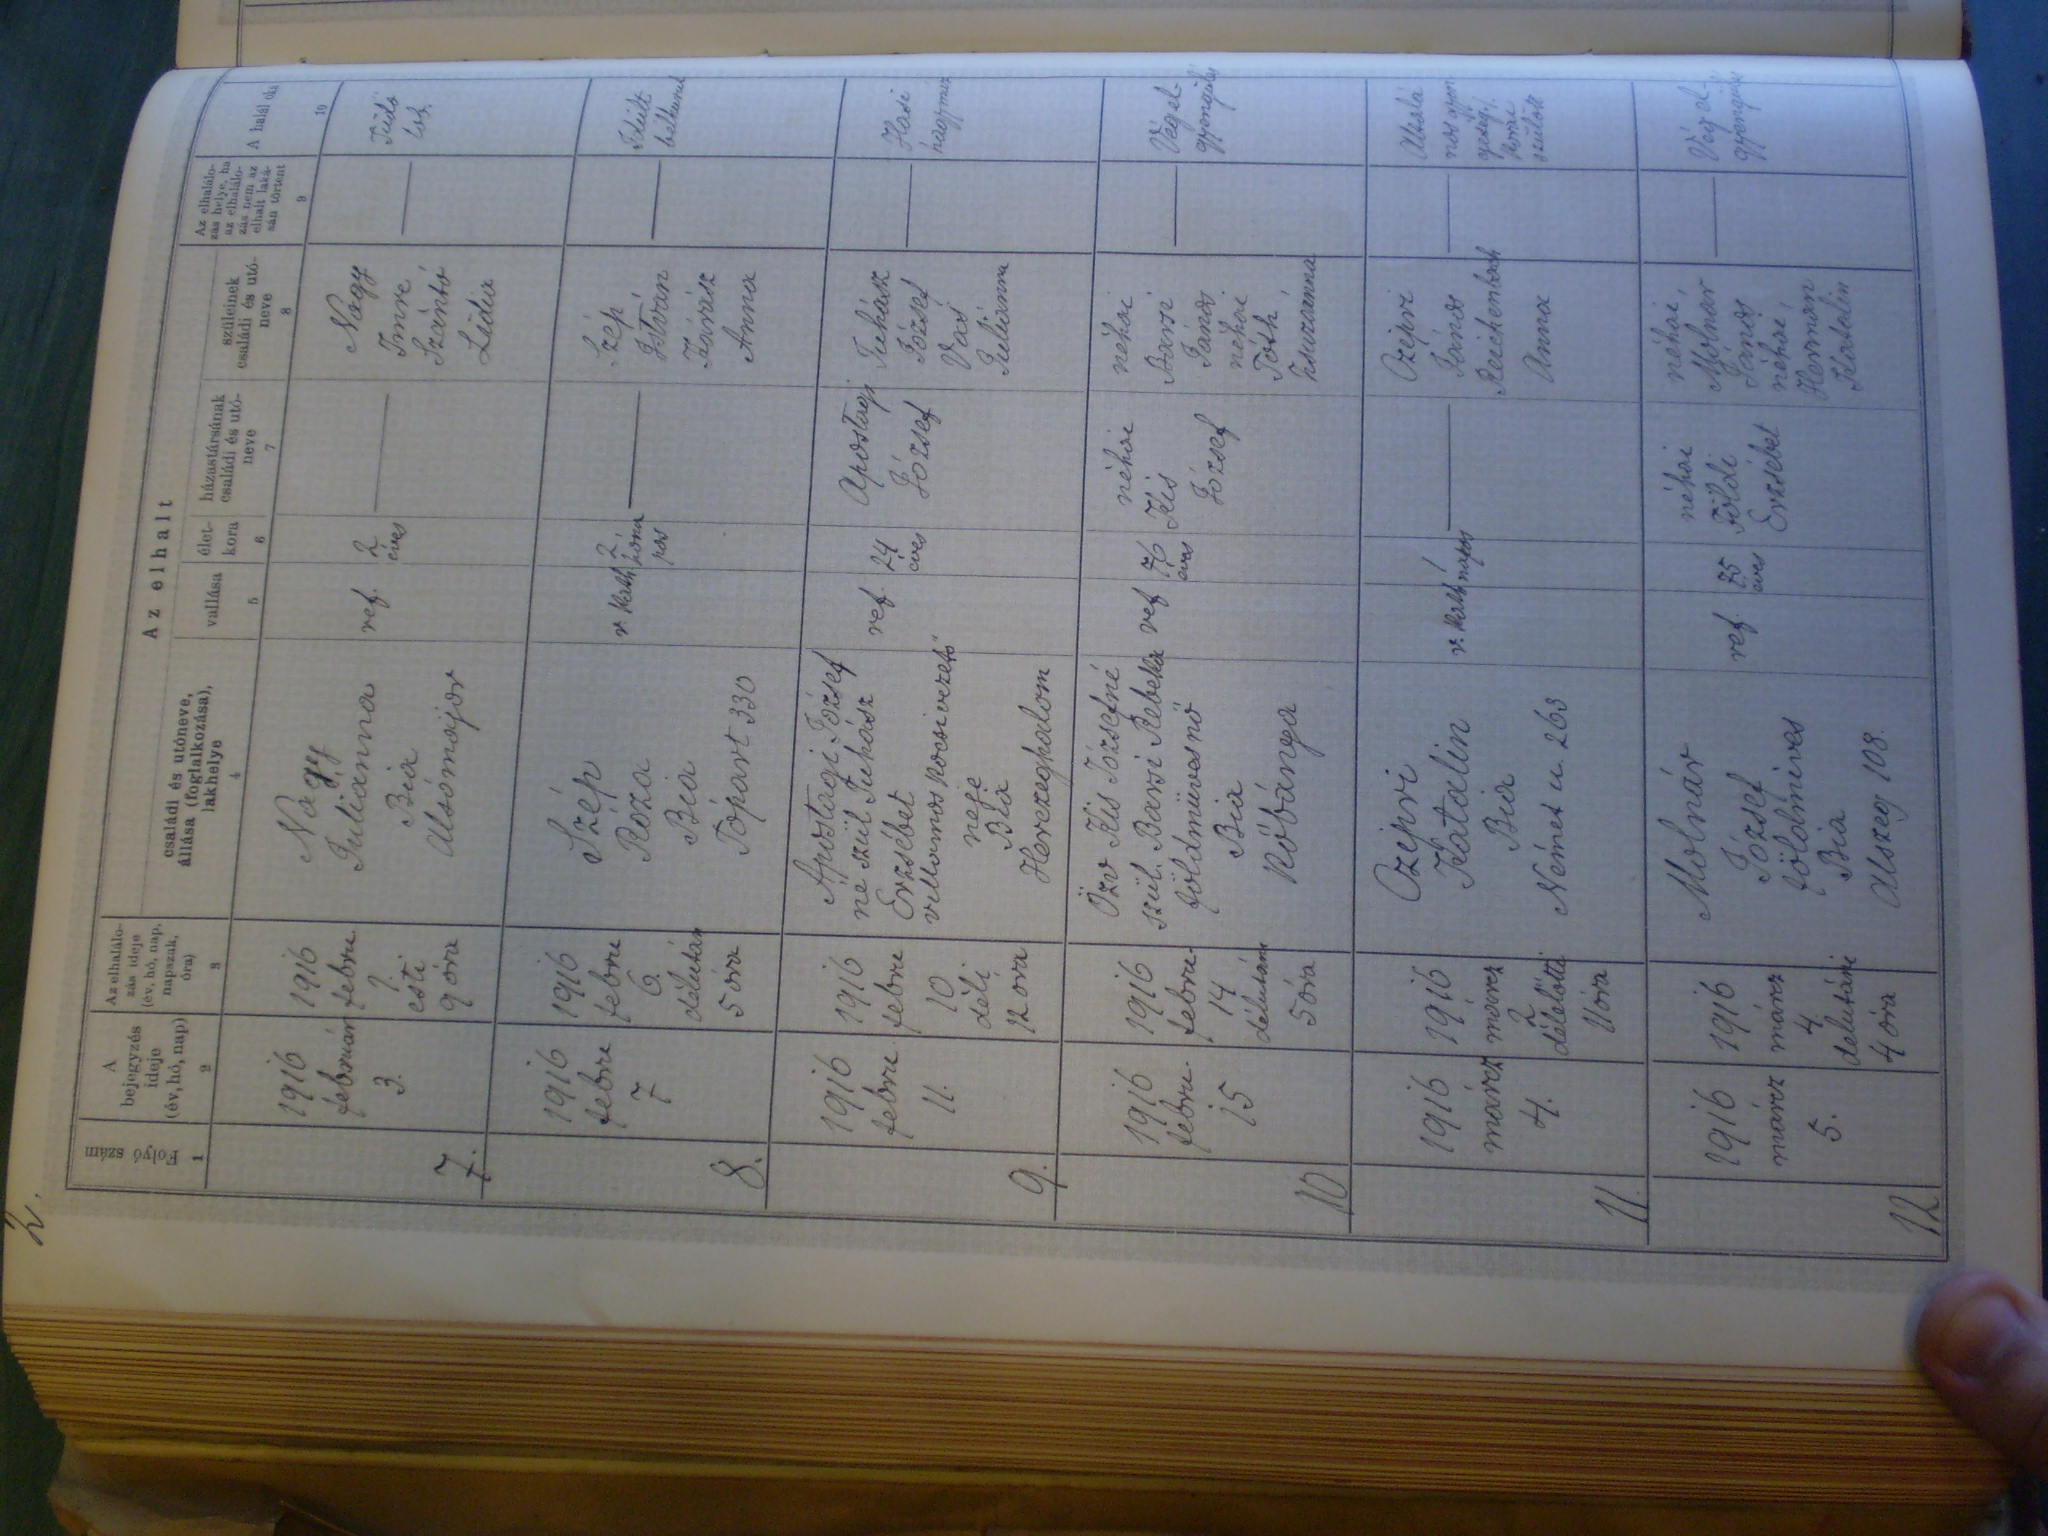 2.
Az elhalt
Folyó szám
A bejegyzés ideje (év, hó, nap)
Az elhalálo-
zás ideje
(év, hó, nap,
napszak,
óra)
családi és utóneve,
állása (foglalkozása),
lakhelye
vallása
élet-
kora
házastársának
családi és utó-
neve
szüleinek
családi és utó-
neve
Az elhalálo-
zás helye, ha
az elhalálo-
zás nem az
elhalt laká-
sán történt
A halál oka
1
2
3
4
5
6
7
8
9
10
7.
1916
február
3.
1916
febru.
1
esti
9 óra
Nagy
Julianna
Bia
Alsómajor
ref.
2
éves
Nagy
Imre
Szántó
Lidia
Tüdő
lob.
8.
1916
febru
7
1916
febru
6.
délután
5 óra
Szép
Roza
Bia
Tópart 330
r. kath.
2
hóna
pos
Szép
István
Anna
9.
1916
febru.
11.
1916
febru
10
déli
12 óra
Apostagi József
né szül Juhász
Erzsébet
villamos kocsivezető
neje
Bia
Herczeghalom
ref.
24
éves
Apostagi
József
Juhász
József
Vas
Juliánna
Hasi
10
1916
febru.
15
1916
febru.
14
délután
5 óra
Özv Kis Józsefné
szül. Barsi Rebeka
földmüvesnő
Bia
Kőbánya
ref
76
éves
néhai
Kis
József
néhai
Barsi
János
néhai
Tóth
Zsuzsánna
Végel-
gyengülés
11.
1916
márcz
4.
1916
márcz
2
délelőtti
11 óra
Czejpri
Katalin
Bia
Német u. 263
r. kath
1
napos
Czejpri
János
Reichenbach
Anna
szülött
12
1916
márcz
5.
1916
márcz
4.
délutáni
4 óra
Molnár
József
földmíves
Bia
Alszeg 108.
ref.
75
éves
néhai
Földi
Erzsébet
néhai
Molnár
János
néhai
Herman
Katalin
Végel-
gyengülés